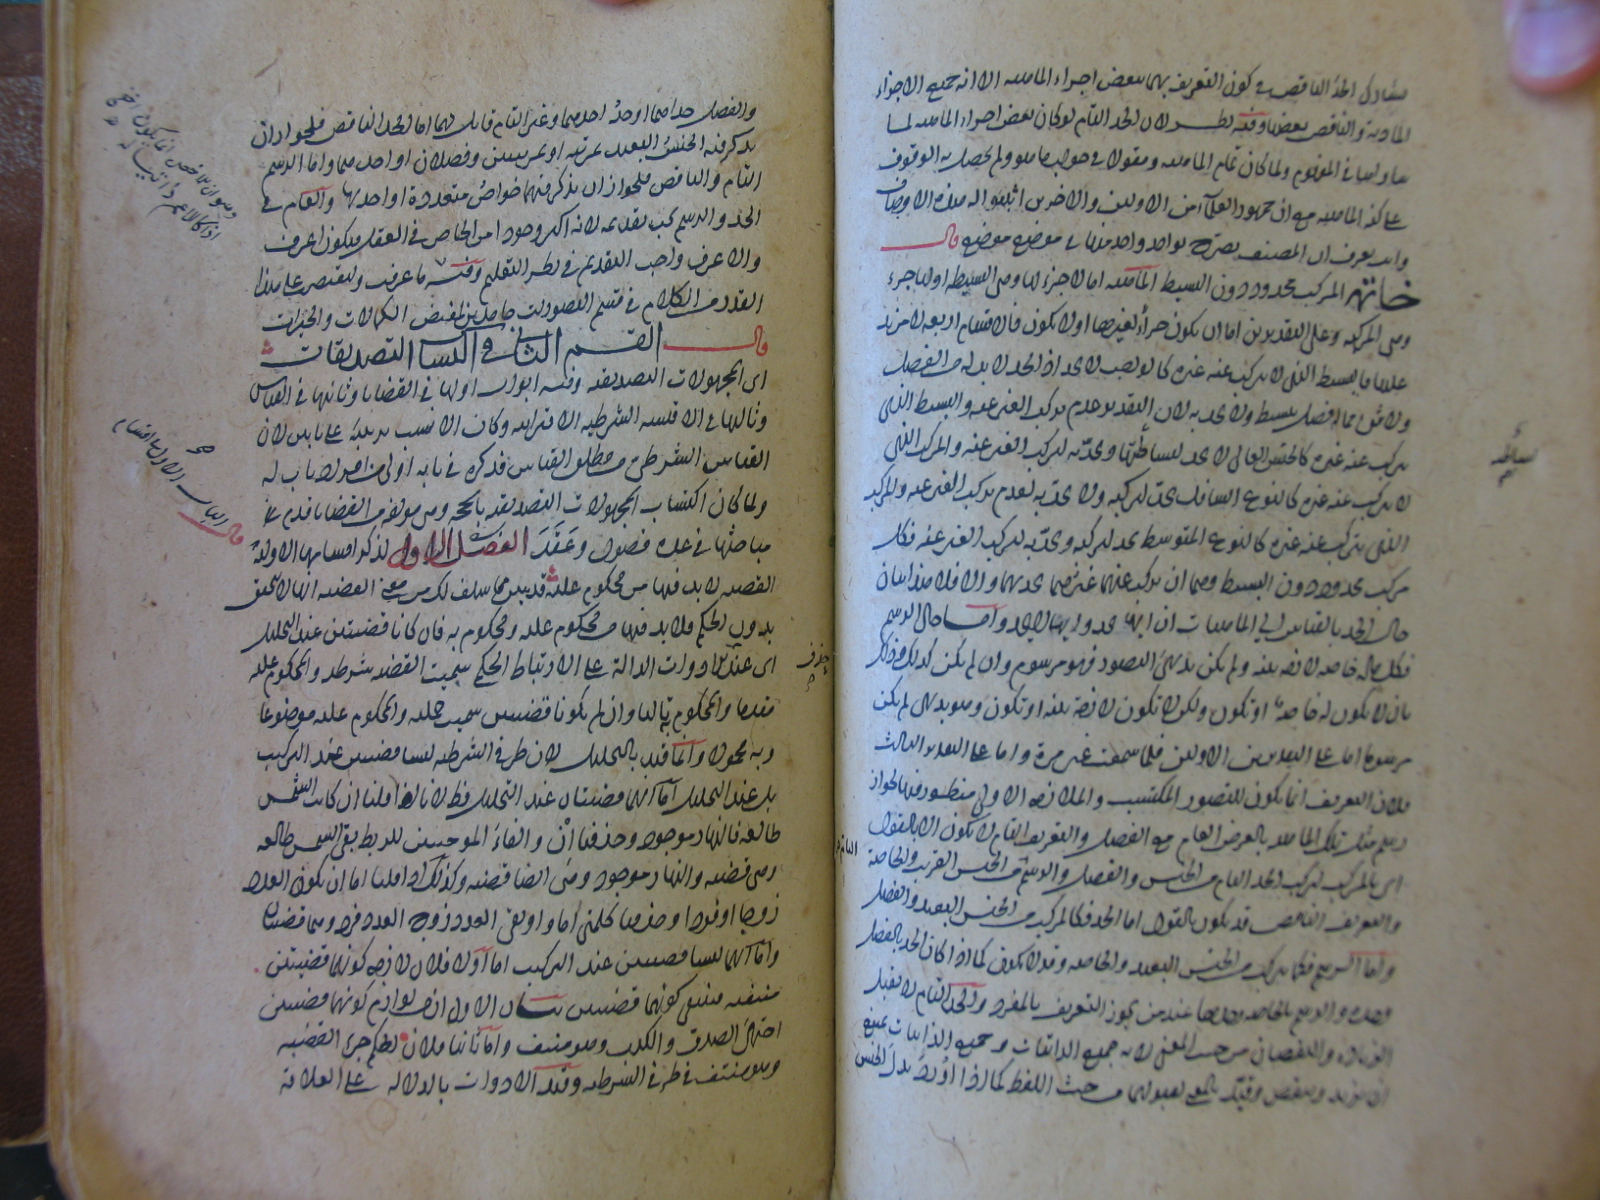 يشارك الحد الناقص في كون التعريف بهما ببعض اجزاء الماهية الا انه جميع الاجزاء
المادية والناقص بعضها وفيه نظر لان الحد التام لو كان بعض اجزاء الماهية لما
ساواها في المفهوم ولما كان تمام الماهية ومقولا في جواب ما هو ولم يحصل به الوقوف
على كنه الماهية مع ان جمهور العلماء من الاولين والاخرين اثبتوا له هذه الاوصاف
وانت تعرف ان المصنف يصرح بواحد واحد منها في موضع موضع قال
خاتمة المركب محدود دون البسيط الماهية اما لا جزء لها وهي البسيطة او لها جزء
وهي المركبة وعلى التقديرين اما ان يكون جزءا لغيرها او لا يكون فالاقسام اربعة لا مزيد
عليها فالبسيط الذي لا يتركب عنه غيره كالواجب لا يحد اذ الحد لا بد له من الفصل
ولا شيء مما له فصل ببسيط ولا يحد به لان التقدير عدم تركب الغير عنه والبسيط الذي
يتركب عنه غيره كالجنس العالي لا يحد لبساطتها ويحد به لتركب الغير عنه والمركب الذي
لا يتركب عنه غيره كالنوع السافل يحد لتركبه ولا يحد به لعدم تركب الغير عنه والمركب
الذي يتركب عنه غيره كالنوع المتوسط يحد لتركبه ويحد به لتركب الغير عنه فكل
مركب محدود دون البسيط وهما ان تركب عنهما غيرهما يحد بهما والا فلا هذا بيان
حال الحد بالقياس الى الماهيات ان ايها يحد وايها لا يحد واما حال الرسم
فكل ماله خاصة لازمة بينة ولم يكن بديهي التصور فهو مرسوم وان لم يكن كذلك وذلك
بان لا يكون له خاصة او تكون ولكن لا تكون لازمة بينة او تكون وهو بديهي لم يكن
مرسوما اما على التقديرين الاولين فلما سمعت غير مرة واما على التقدير الثالث
فلان التعريف انما يكون للتصور المكتسب والملازمة الاولى منظور فيها لجواز
رسم مثل تلك الماهية بالعرض العام مع الفصل والتعريف التام لا يكون الا بالقول
اي بالمركب لتركب الحد التام من الجنس والفصل والرسم من الجنس القريب والخاصة
والتعريف الناقص قد يكون بالقول اما الحد فكالمركب من الجنس البعيد والفصل
واما الرسم فكما تركب من الجنس البعيد والخاصة وقد لا يكون كما اذا كان الحد بالفصل
وحده والرسم بالخاصة وحدها عند من يجوز التعريف بالمفرد والحد التام لا يقبل
الزيادة والنقصان من حيث المعنى لانه جميع الذاتيات وجميع الذاتيات يمتنع
ان يزيد وينقص وقيد بالمعنى لقبولهما من حيث اللفظ كما اذا اورد بدل الجنس
والفصل حداهما او حد احدهما وغير التام قابل لهما اما الحد الناقص فلجواز ان
يذكر فيه الجنس البعيد بمرتبة او بمرتبتين وفصلان او احدهما واما الرسم
التام والناقص فلجواز ان يذكر فيهما خواص متعددة او احدها والعام في
الحد والرسم يجب تقديمه لانه اكثر وجودا من الخاص في العقل فيكون اعرف
والاعرف واجب التقديم في نظر التعليم وفيه ما عرفت ولنقتصر على هذا
القدر من الكلام في قسم التصورات حامدين لمفيض الكمالات والخيرات
قال القسم الثاني في اكتساب التصديقات
اي المجهولات التصديقية وفيه ابواب اولها في القضايا وثانيها في القياس
وثالثها في الاقيسة الشرطية الاقترانية وكان الانسب تربيعه على بابين لان
القياس الشرطي من مطلق القياس فذكره في بابه اولى من افراد باب له
ولما كان اكتساب المجهولات التصديقية بالحجة وهي مؤلفة من القضايا قدم
مباحثها في عدة فصول وعقد الفصل الاول لذكر اقسامها الاولية
القضية لا بد فيها من محكوم عليه قد تبين مما سلف لك من معنى القضية انها لا تتحقق
بدون الحكم فلا بد فيها من محكوم عليه ومحكوم به فان كانا قضيتين عند التحليل
اي عند الادوات الدالة على الارتباط الحكمي سميت القضية شرطية والمحكوم عليه
مقدما والمحكوم به تاليا وان لم يكونا قضيتين سميت حملية والمحكوم عليه موضوعا
وبه محمولا وانما قيد بالتحليل لان طرفي الشرطية ليسا قضيتين عند التركيب
بل عند التحليل اما انهما قضيتان عند التحليل فظ لانا اذا قلنا ان كانت الشمس
طالعة فالنهار موجود وحذفنا ان والفاء الموجبتين للربط بقي الشمس طالعة
وهي قضية والنهار موجود وهي ايضا قضية وكذلك اذا قلنا اما ان يكون العدد
زوجا او فردا وحذفنا كلمتي اما واو بقي العدد زوج العدد فرد وهما قضيتان
واما انهما ليسا قضيتين عند التركيب اما اولا فلان لازم كونهما قضيتين
منتف فينتفي كونهما قضيتين بيان الاول ان من لوازم كونهما قضيتين
احتمال الصدق والكذب وهو منتف واما ثانيا فلان الحكم جزء القضية
وهو منتف في طرفي الشرطية وقيد الادوات بالدلالة على العلاقة
بسائط
حذف
الباب الاول في اقسام
قال